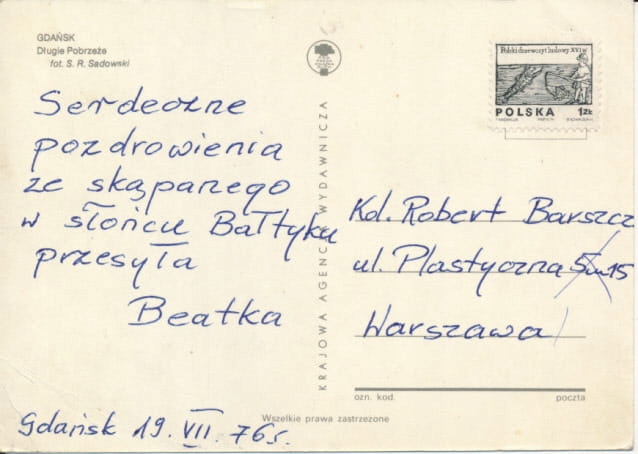 GDAŃSK
Długie Pobrzeże
fot. S. R. Sadowski
Serdeczne
pozdrowienia
ze skąpanego
w słońcu Bałtyku
przesyła
Beatka
Gdańsk 19. VII. 76r.
KRAJOWA AGENCJA WYDAWNICZA
Polski drzeworyt ludowy XVI w
POLSKA 1zł
Kd. Robert Barszcz
ul. Plastyczna 5 m 15
Warszawa
ozn. kod. poczta
Wszelkie prawa zastrzeżone